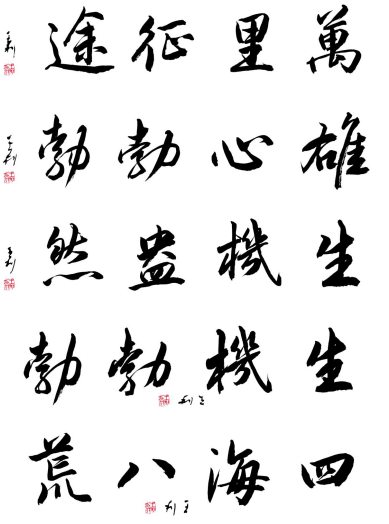 萬里征途
雄心勃勃
生機盎然
生機勃勃
四海八荒